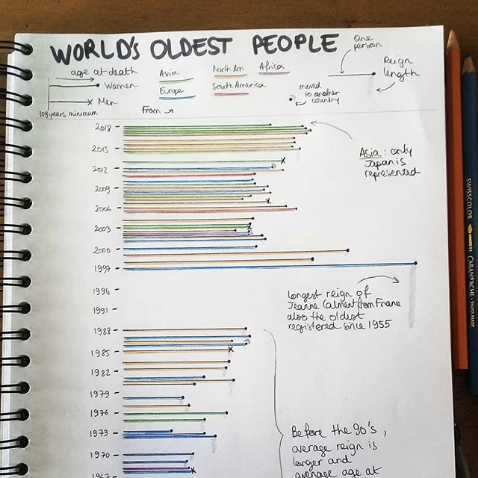 WORLD'S OLDEST PEOPLE
one person
Reign length
age at death
Women
Men
109 years minimum
Asia
North Am
Africa
Europe
South America
moved to another country
From
2018
2015
2012
2009
2006
2003
2000
1997
1994
1991
1988
1985
1982
1979
1976
1973
1970
1967
Asia: only
Japan is
represented
longest reign of
Jeanne Calment from France
also the oldest
registered since 1955
Before the 90's,
average reign is
longer and
average age at
SWISSCOLOR
CARAN D'ACHE